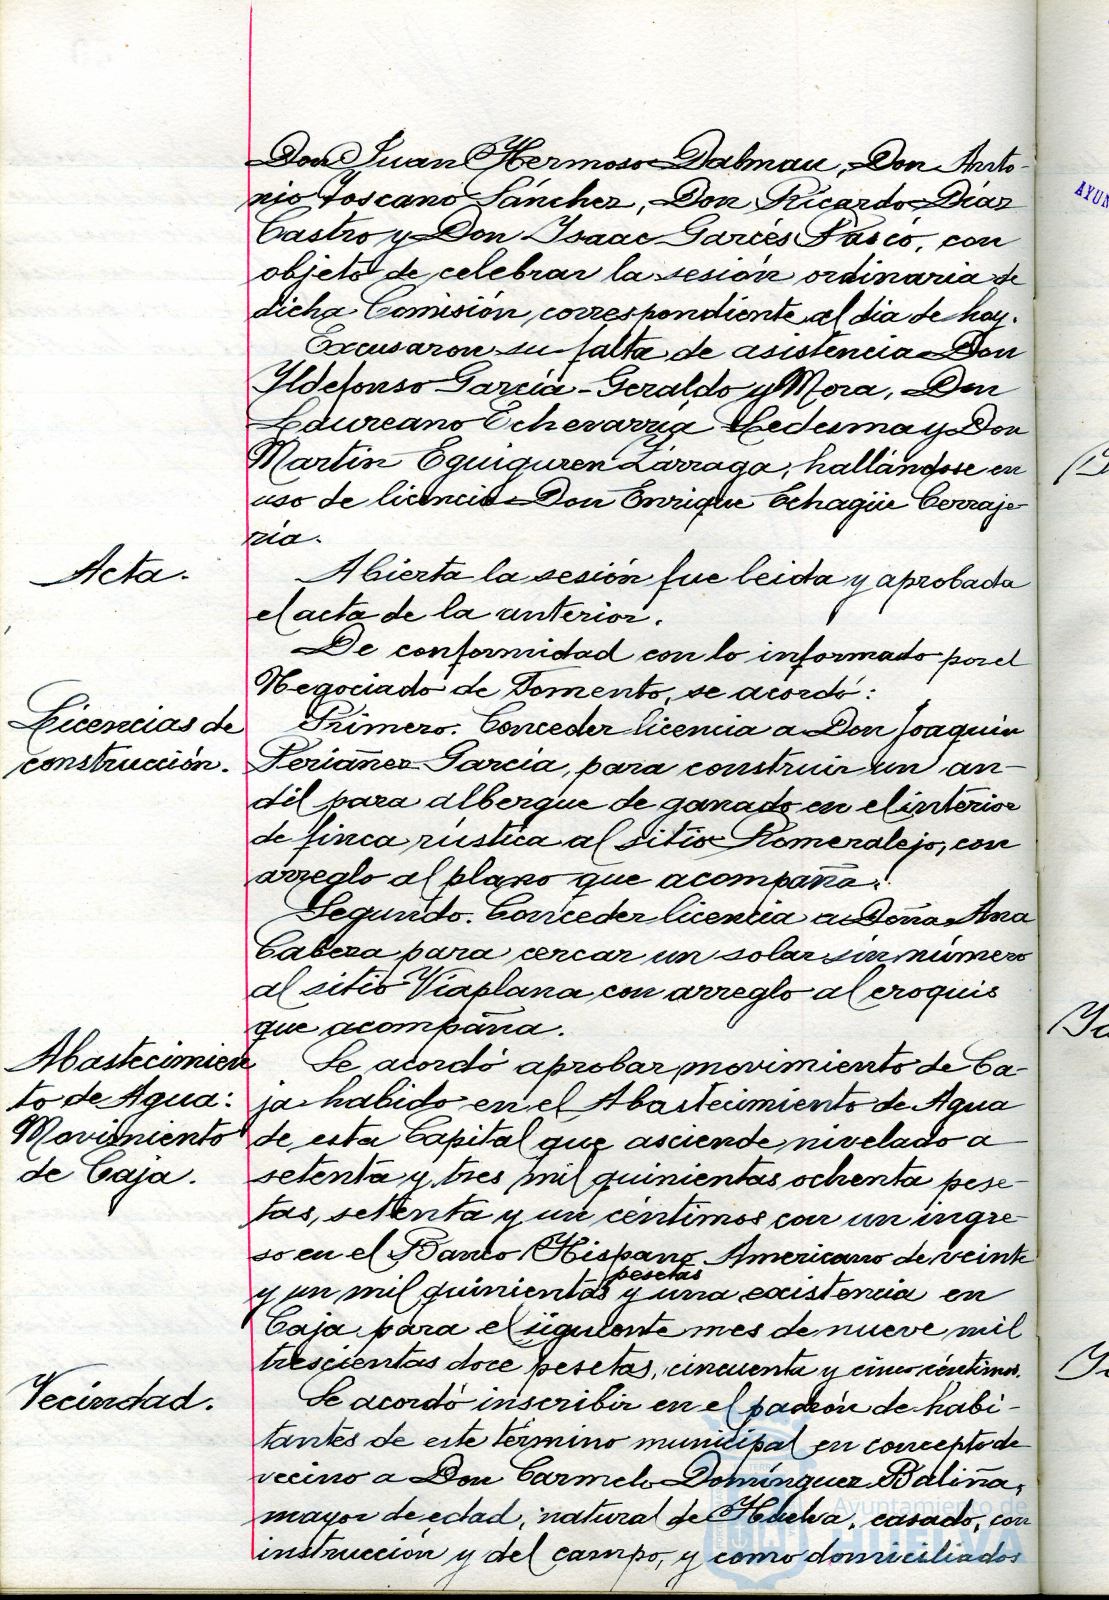 Don Juan Hermoso Dalmau, Don Anto-
nio Toscano Sánchez, Don Ricardo Díaz
Castro y Don Isaac Garcés Pascó, con
objeto de celebrar la sesión ordinaria de
dicha Comisión correspondiente al dia de hoy.
Excusaron su falta de asistencia Don
Ildefonso García-Geraldo y Mora, Don
Laureano Echevarría Ledesma y Don
Martín Eguiguren Lárraga, hallándose en
uso de licencia Don Enrique Echagüe Cerraje-
ría.
Acta.
Abierta la sesión fue leida y aprobada
el acta de la anterior.
De conformidad con lo informado por el
Negociado de Fomento, se acordó:
Licencias de
construcción.
Primero. Conceder licencia a Don Joaquin
Periañez García, para construir un an-
dél para albergue de ganado en el interior
de finca rústica al sitio Romeralejo, con
arreglo al plano que acompaña.
Segundo. Conceder licencia a Doña Ana
Cabeza para cercar un solar sin número
al sitio Viaplana con arreglo al croquis
que acompaña.
Abastecimien
to de Agua:
Movimiento
de Caja.
Se acordó aprobar movimiento de Ca-
ja habido en el Abastecimiento de Agua
de esta Capital que asciende nivelado a
setenta y tres mil quinientas ochenta pese-
tas, setenta y un céntimos con un ingre-
so en el Banco Hispano Americano de veinte
pesetas
y un mil quinientas y una existencia en
Caja para el siguiente mes de nueve mil
trescientas doce pesetas, cincuenta y cinco céntimos.
Vecindad.
Se acordó inscribir en el padrón de habi-
tantes de este término municipal en concepto de
vecino a Don Carmelo Domínguez Baliña,
mayor de edad, natural de Huelva, casado, con
instrucción y del campo, y como domiciliados
Ayuntamiento de
HUELVA
AYUN